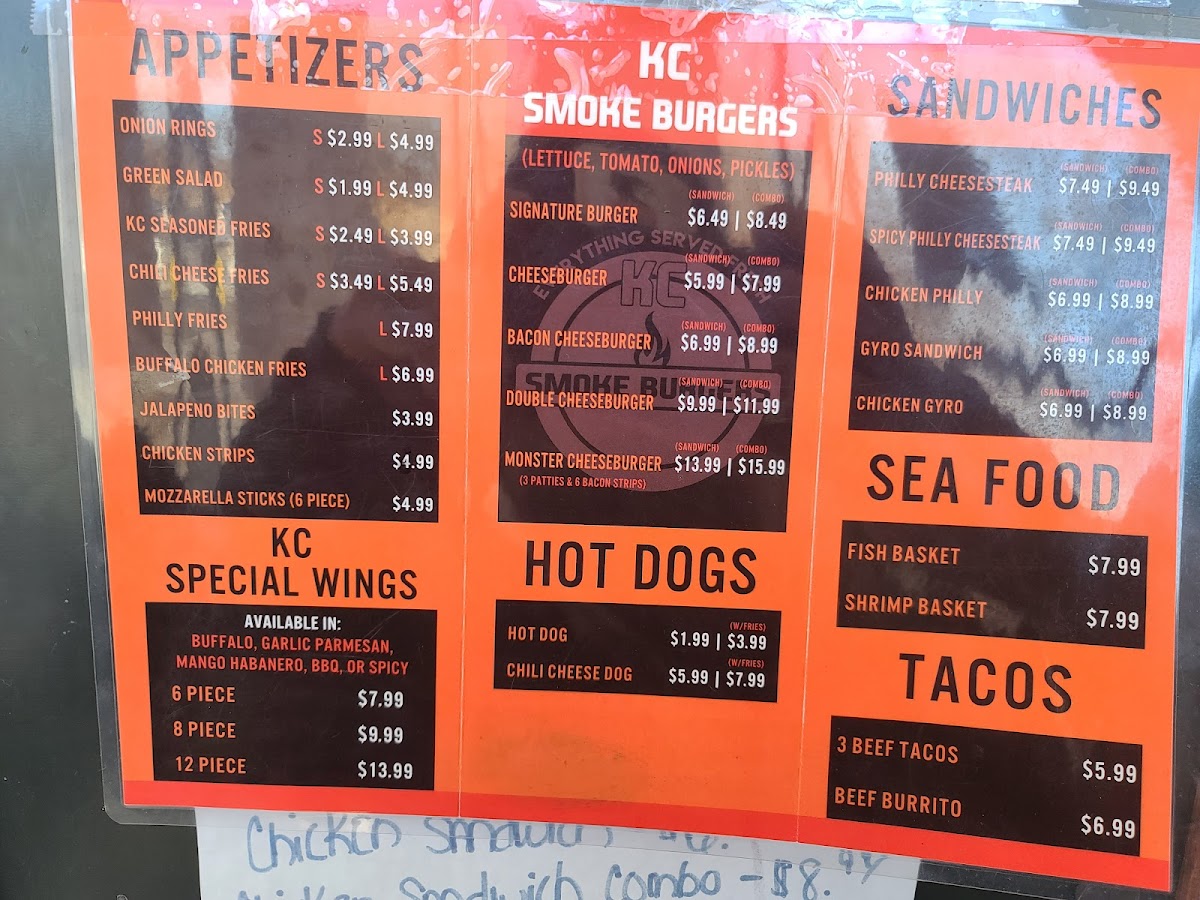 APPETIZERS
ONION RINGS S $2.99 L $4.99
GREEN SALAD S $1.99 L $4.99
KC SEASONED FRIES S $2.49 L $3.99
CHILI CHEESE FRIES S $3.49 L $5.49
PHILLY FRIES L $7.99
BUFFALO CHICKEN FRIES L $6.99
JALAPENO BITES $3.99
CHICKEN STRIPS $4.99
MOZZARELLA STICKS (6 PIECE) $4.99
KC
SPECIAL WINGS
AVAILABLE IN:
BUFFALO, GARLIC PARMESAN,
MANGO HABANERO, BBQ, OR SPICY
6 PIECE $7.99
8 PIECE $9.99
12 PIECE $13.99
KC
SMOKE BURGERS
(LETTUCE, TOMATO, ONIONS, PICKLES)
(SANDWICH) (COMBO)
SIGNATURE BURGER $6.49 | $8.49
EVERYTHING SERVED FRESH
KC
(SANDWICH) (COMBO)
CHEESEBURGER $5.99 | $7.99
(SANDWICH) (COMBO)
BACON CHEESEBURGER $6.99 | $8.99
SMOKE BURGERS
(SANDWICH) (COMBO)
DOUBLE CHEESEBURGER $9.99 | $11.99
(SANDWICH) (COMBO)
MONSTER CHEESEBURGER $13.99 | $15.99
(3 PATTIES & 6 BACON STRIPS)
HOT DOGS
(W/FRIES)
HOT DOG $1.99 | $3.99
(W/FRIES)
CHILI CHEESE DOG $5.99 | $7.99
SANDWICHES
(SANDWICH) (COMBO)
PHILLY CHEESESTEAK $7.49 | $9.49
(SANDWICH) (COMBO)
SPICY PHILLY CHEESESTEAK $7.49 | $9.49
(SANDWICH) (COMBO)
CHICKEN PHILLY $6.99 | $8.99
(SANDWICH) (COMBO)
GYRO SANDWICH $6.99 | $8.99
(SANDWICH) (COMBO)
CHICKEN GYRO $6.99 | $8.99
SEA FOOD
FISH BASKET $7.99
SHRIMP BASKET $7.99
TACOS
3 BEEF TACOS $5.99
BEEF BURRITO $6.99
Chicken Sandwich
Chicken Sandwich Combo - $8.